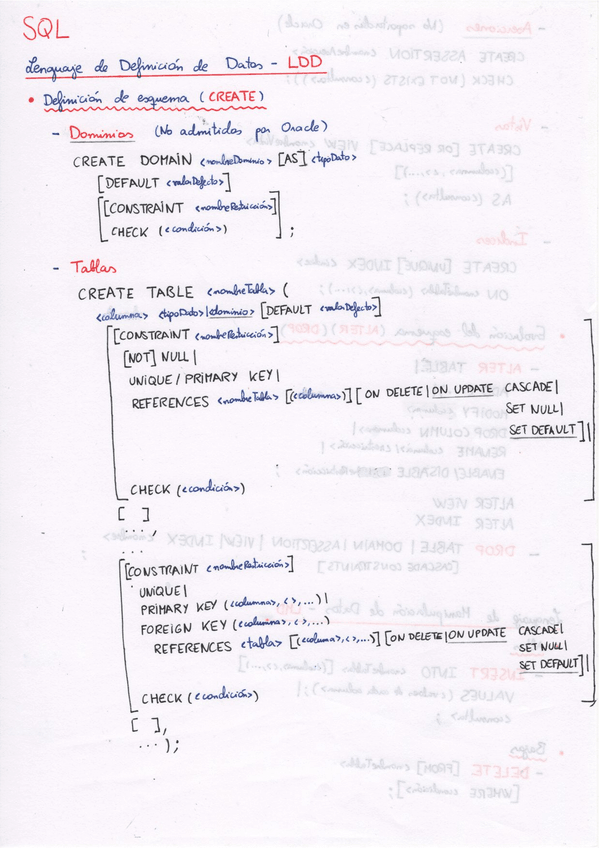 SQL
Lenguaje de Definición de Datos - LDD
• Definición de esquema (CREATE)
- Dominios (No admitidos por Oracle)
CREATE DOMAIN <nombreDominio> [AS] <tipoDato>
[DEFAULT <valorDefecto>]
[[CONSTRAINT <nombreRestricción>]
CHECK (<condición>) ] ;
- Tablas
CREATE TABLE <nombreTabla> (
<columna> <tipoDato>|<dominio> [DEFAULT <valorDefecto>]
[[CONSTRAINT <nombreRestricción>]
[NOT] NULL |
UNIQUE / PRIMARY KEY |
REFERENCES <nombreTabla> [(<columna>)] [ON DELETE | ON UPDATE CASCADE |
SET NULL |
SET DEFAULT] |
CHECK (<condición>) ]
[ ]
...,
...
[[CONSTRAINT <nombreRestricción>]
UNIQUE |
PRIMARY KEY (<columna>, < >, ...) |
FOREIGN KEY (<columna>, < >, ...)
REFERENCES <tabla> [(<columna>, < >, ...)] [ON DELETE | ON UPDATE CASCADE |
SET NULL |
SET DEFAULT] |
CHECK (<condición>) ]
[ ],
... );